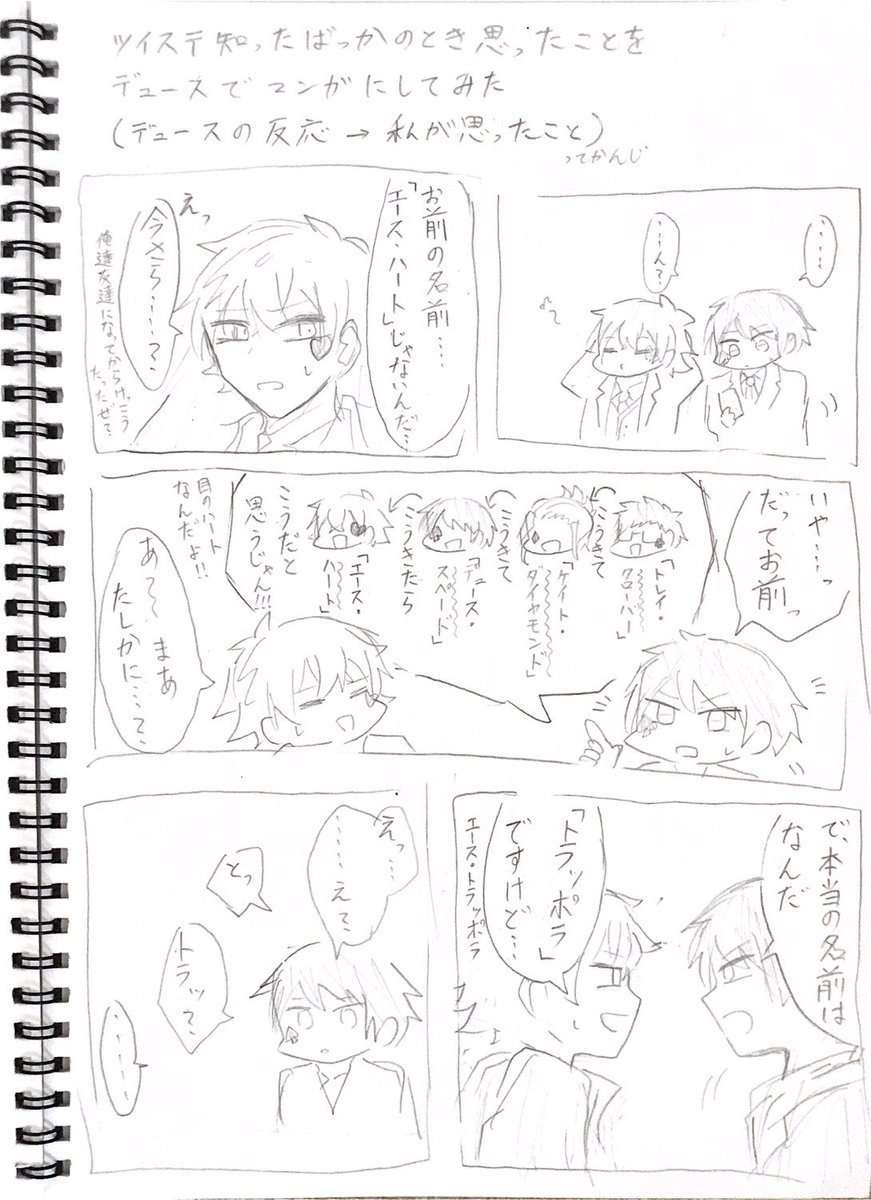 ツイステ知ったばっかのとき思ったことを
デュースでマンガにしてみた
(デュースの反応→私が思ったこと)
ってかんじ
……
……ん?
お前の名前…
「エース・ハート」じゃないんだ…
えっ
今さら……?
俺達友達になってからけっこう
たったぜ?
いや…っ
だってお前っ
「トレイ・
クローバー」
こうきて
「ケイト・
ダイヤモンド」
こうきて
「デュース・
スペード」
こうきたら
「エース・
ハート」
こうだと
思うじゃん!!!
目のハート
なんだよ!!
あ〜まあ
たしかに…?
で、本当の名前は
なんだ
「トラッポラ」
ですけど…
エース・トラッポラ
えっ…
……え?
とっ
トラッ?
……